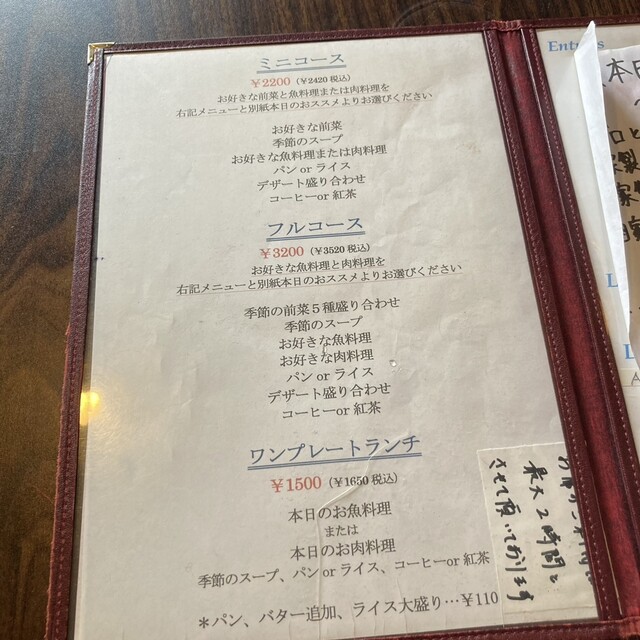 ミニコース
￥2200（￥2420 税込）
お好きな前菜と魚料理または肉料理を
右記メニューと別紙本日のおススメよりお選びください
お好きな前菜
季節のスープ
お好きな魚料理または肉料理
パン or ライス
デザート盛り合わせ
コーヒーor 紅茶
フルコース
￥3200（￥3520 税込）
お好きな魚料理と肉料理を
右記メニューと別紙本日のおススメよりお選びください
季節の前菜５種盛り合わせ
季節のスープ
お好きな魚料理
お好きな肉料理
パン or ライス
デザート盛り合わせ
コーヒーor 紅茶
ワンプレートランチ
￥1500（￥1650 税込）
本日のお魚料理
または
本日のお肉料理
季節のスープ、パン or ライス、コーヒーor 紅茶
＊パン、バター追加、ライス大盛り…￥110
最大２時間と
させて頂いております
本日